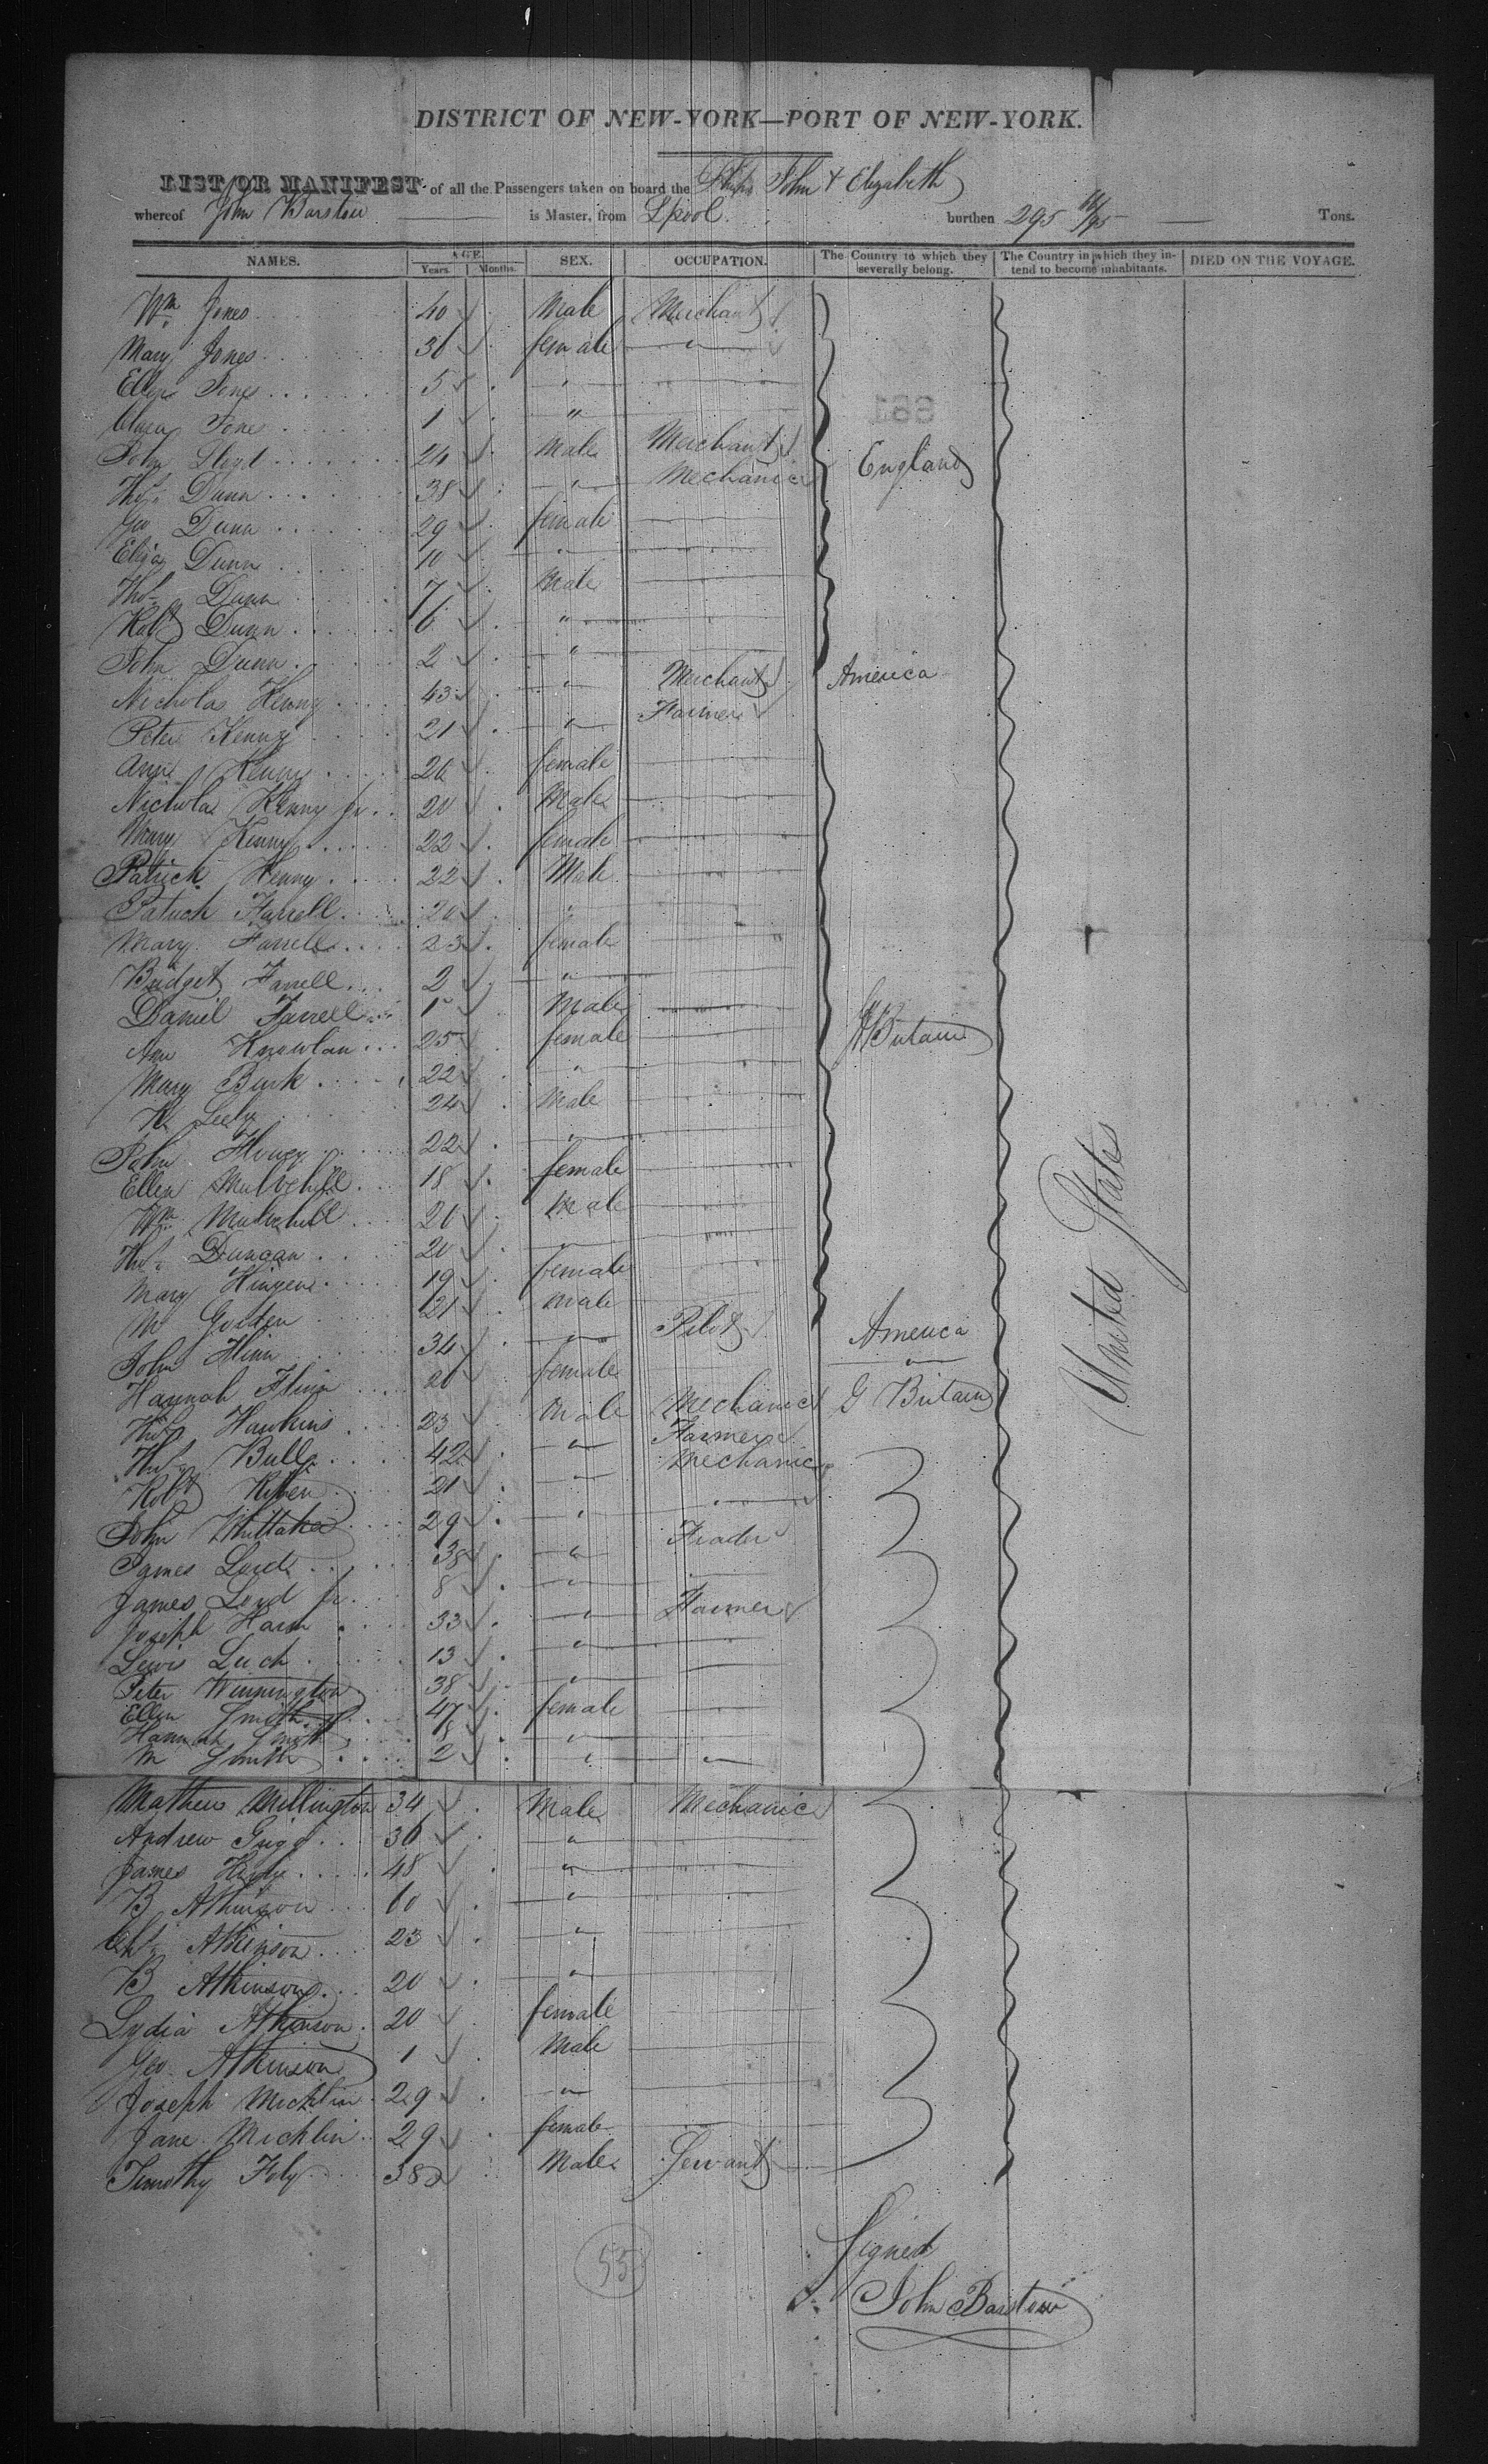 DISTRICT OF NEW-YORK—PORT OF NEW-YORK.
LIST OR MANIFEST of all the Passengers taken on board the Ship John & Elizabeth
whereof John Barstow is Master, from Lpool. burthen 295 Tons.
NAMES. AGE. Years. Months. SEX. OCCUPATION. The Country to which they severally belong. The Country in which they intend to become inhabitants. DIED ON THE VOYAGE.
Wm Jones 40 Male Merchant
Mary Jones 36 female "
Ellen Jones 5 "
Jones 1 "
John Lloyd 24 Male Merchant England
Thos Dunn 38 " Mechanic
Dunn 29 female
Eliza Dunn 10 "
Thos Dunn 7 Male
Robt Dunn 6 "
John Dunn 2 "
Nicholas Kenny 43 " Merchant America
Peter Kenny 21 " Farmer
Ann Kenny 26 female
Nicholas Kenny Jr. 20 Male
Mary Kenny 22 female
Patrick Kenny 22 Male
Patrick Farrell 20 "
Mary Farrell 23 female
Bridget Farrell 2 "
Daniel Farrell 1 Male
Ann Knowlan 25 female Gt Britain
Mary Burk 22 "
24 Male
John 22 "
Ellen Mulvehill 18 female
Wm Mulvehill 20 Male
Thos Duncan 20 "
Mary 19 female
M Gorden 21 Male
John Flinn 34 " Pilot America
Hannah Flinn 20 female "
Thos Hawkins 23 Male Mechanic G Britain
Thos Bull 42 " Farmer
Robt 21 " Mechanic
John Whittaker 29 " "
James Lord 38 " Trader
James Lord Jr. 8 "
Joseph 33 " Farmer
Lewis 13 "
Peter Winnington 38 "
Ellen Smith 47 female
Hannah Smith 8 "
M Smith 2 " "
United States
Mathew Millington 34 Male Mechanic
Andrew 36 "
James 48 "
B Atkinson 60 "
Atkinson 23 "
B Atkinson 20 "
Lydia Atkinson 20 female
Geo Atkinson 1 Male
Joseph Michlin 29 "
Jane Michlin 29 female
Timothy Foly 38 Male Servant
55
Signed
John Barstow